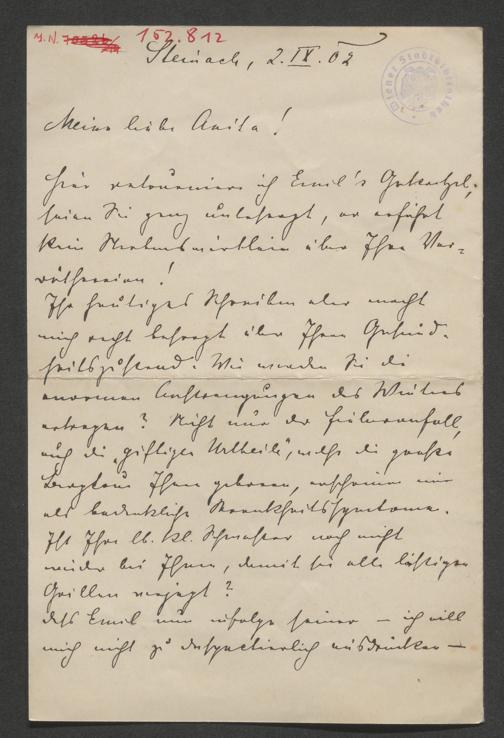 J.N. 162.812
Steinach, 2.IX.02
Wiener Stadtbibliothek
Meine liebe Anita!
Hier retourniere ich Emil's Gekritzel;
seien Sie ganz unbesorgt, er erfährt
kein Sterbenswörtlein über Ihre Ver-
räthereien!
Ihr heutiges Schreiben aber macht
mich recht besorgt über Ihren Gesund-
heitszustand. Wie werden Sie die
enormen Anstrengungen des Winters
ertragen? Nicht nur der Fieberanfall,
auch die „giftigen Urtheile", welche die große
Bergtour Ihnen geboren, erscheinen mir
als bedenkliche Krankheitssymptome.
Ist Ihre lb. kl. Schwester noch nicht
wieder bei Ihnen, damit sie alle lästigen
Grillen verjagt?
Dass Emil nun infolge seiner – ich will
mich nicht zu despectierlich ausdrücken –